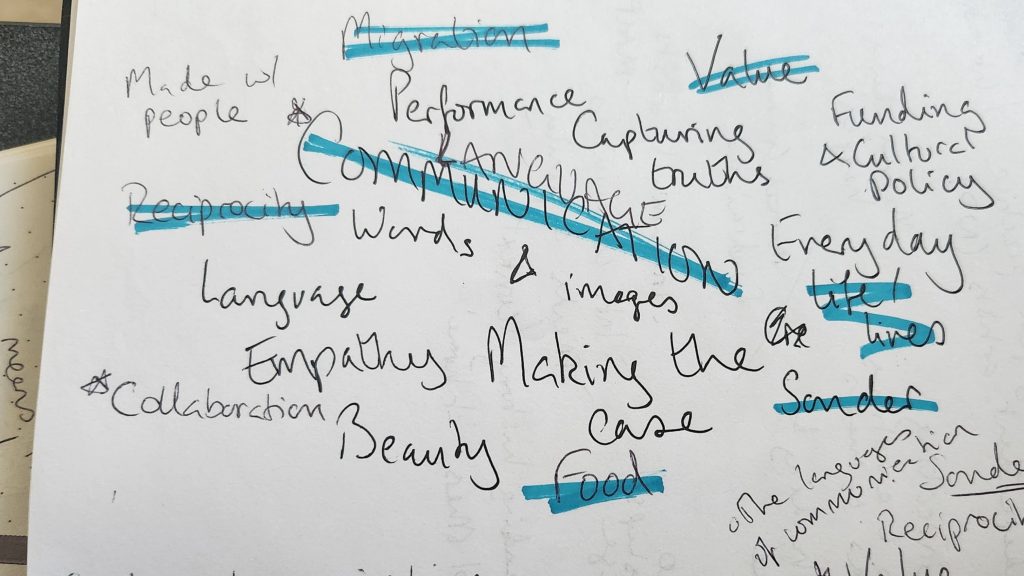 Migration
Value
Made w/
people
Performance
Capturing
truths
Funding
& Cultural
Policy
COMMUNICATION
LANGUAGE
Reciprocity
Words
&
images
Everyday
life/
lives
Language
Empathy
Making the
case
Sonder
Collaboration
Beauty
Food
The languages
of communication
Sonde
Reciprocit
Value